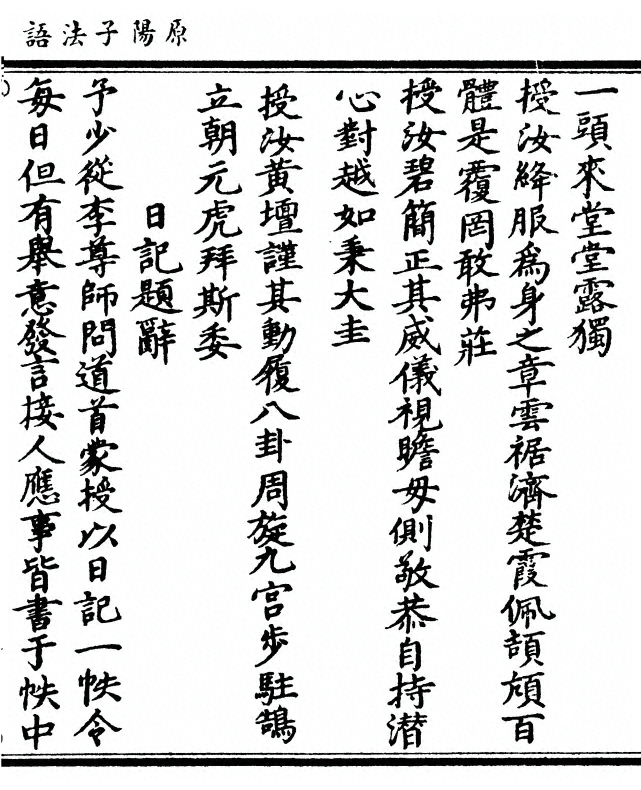 原陽子法語
一頭來堂堂露獨
授汝絳服為身之章雲裾濟楚霞佩頡頏百
體是覆罔敢弗莊
授汝碧簡正其威儀視瞻毋側敬恭自持潛
心對越如秉大圭
授汝黃壇謹其動履八卦周旋九宮步駐鵠
立朝元虎拜斯委
日記題辭
予少從李尊師問道首蒙授以日記一帙令
每日但有舉意發言接人應事皆書于帙中